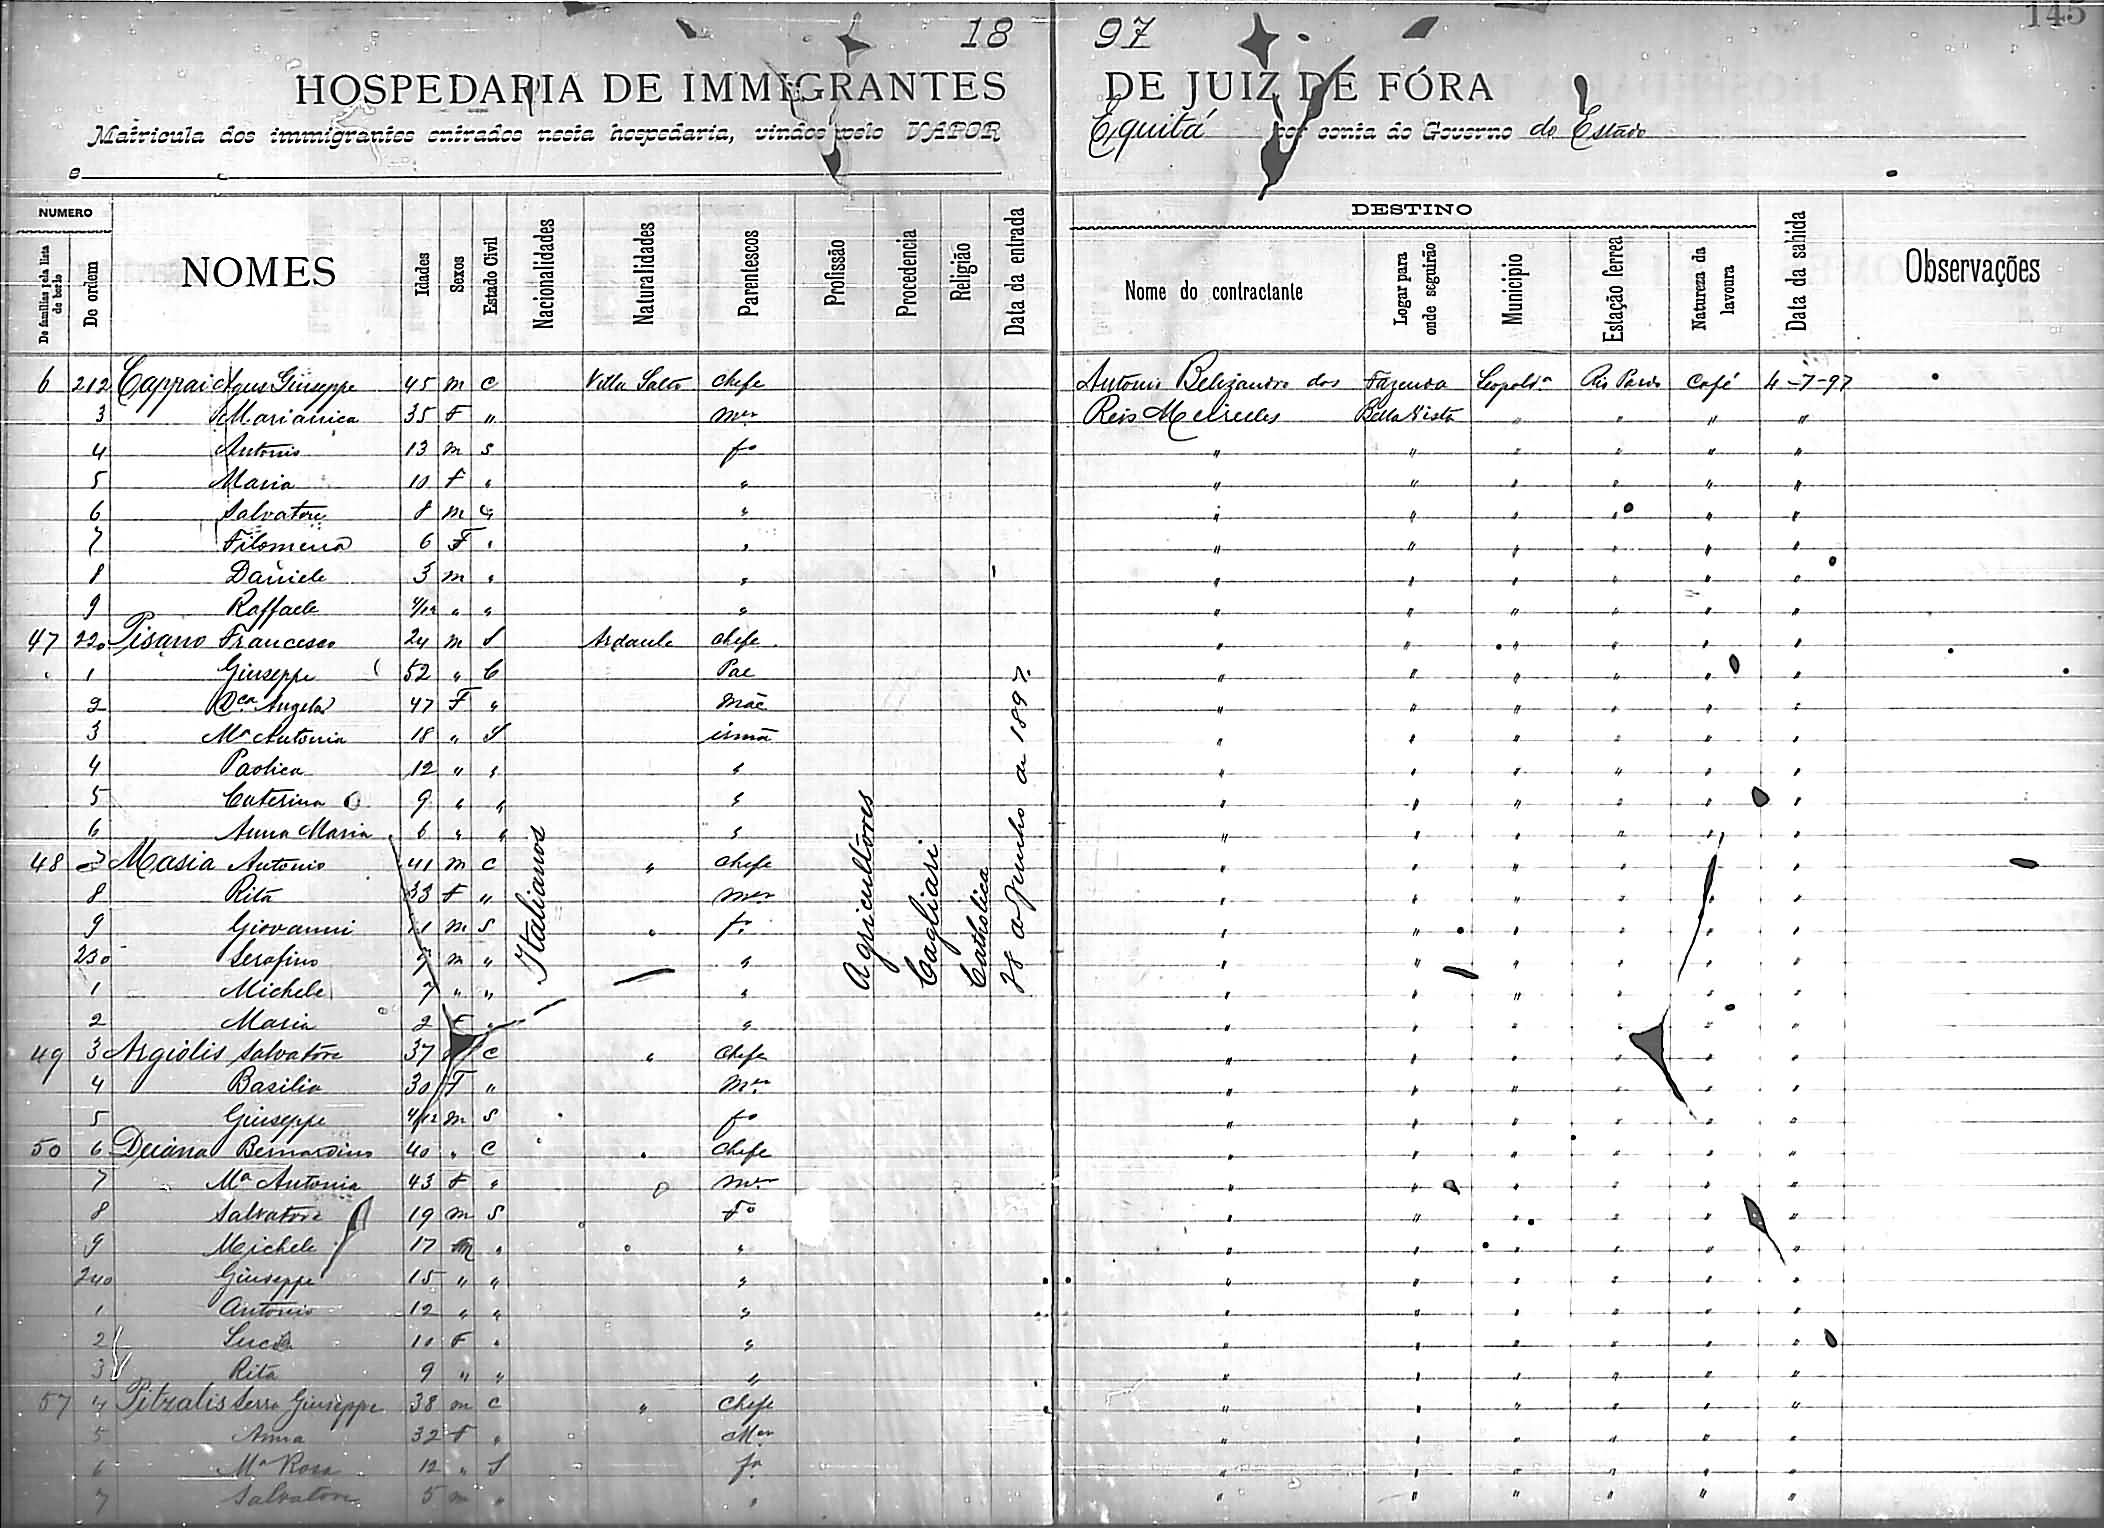 145
18 97
HOSPEDARIA DE IMMIGRANTES DE JUIZ DE FÓRA
Matricula dos immigrantes entrados nesta hospedaria, vindos pelo VAPOR Equitá por conta do Governo do Estado
e
NUMERO DESTINO
De familias pela lista de bordo De ordem NOMES Idades Sexos Estado Civil Nacionalidades Naturalidades Parentescos Profissão Procedencia Religião Data da entrada Nome do contractante Logar para onde seguirão Municipio Estação ferrea Natureza da lavoura Data da sahida Observações
6 212 Cappai Agus Giuseppe 45 m C Villa Salto Chefe Antonio Belizandro dos Fazenda Leopolda Rio Pardo Café 4-7-97
3 Mariannica 35 F " mer Reis Meirelles Bella Vista " " " "
4 Antonio 13 m S fo " " " " " "
5 Maria 10 F " " " " " " " "
6 Salvatore 8 m " " " " " " " "
7 Filomena 6 F " " " " " " " "
8 Daniele 3 m " " " " " " " "
9 Raffaele " " " " " " " " "
47 220 Pisano Francesco 24 m S Ardaule Chefe " " " " " "
1 Giuseppe 52 " C Pae " " " " " "
2 Angela 47 F " Mãe " " " " " "
3 Ma Antonia 18 " S irmã " " " " " "
4 Paolica 12 " " " " " " " " "
5 Caterina 9 " " " " " " " " "
6 Anna Maria 6 " " " " " " " " "
48 7 Masia Antonio 41 m C " Chefe " " " " " "
8 Rita 33 F " mer " " " " " "
9 Giovanni 11 m S " fo " " " " " "
230 Serafino m " " " " " " " "
1 Michele 7 " " " " " " " " "
2 Maria 2 F " " " " " " " "
49 3 Argiolis Salvatore 37 C " Chefe " " " " " "
4 Basilia 30 F " Mer " " " " " "
5 Giuseppe 4/12 m S fo " " " " " "
50 6 Deiana Bernardino 40 " C " Chefe " " " " " "
7 Ma Antonia 43 F " mer " " " " " "
8 Salvatore 19 m S Fo " " " " " "
9 Michele 17 m " " " " " " " "
240 Giuseppe 15 " " " " " " " " "
1 Antonio 12 " " " " " " " " "
2 Lucia 10 F " " " " " " " "
3 Rita 9 " " " " " " " " "
57 4 Pitzalis Serra Giuseppe 38 m C " Chefe " " " " " "
5 Anna 32 F " Mer " " " " " "
6 Ma Rosa 12 " S fa " " " " " "
7 Salvatore 5 m " " " " " " " "
Italianos
Agricultores
Cagliari
Catholica
28 de Junho de 1897.